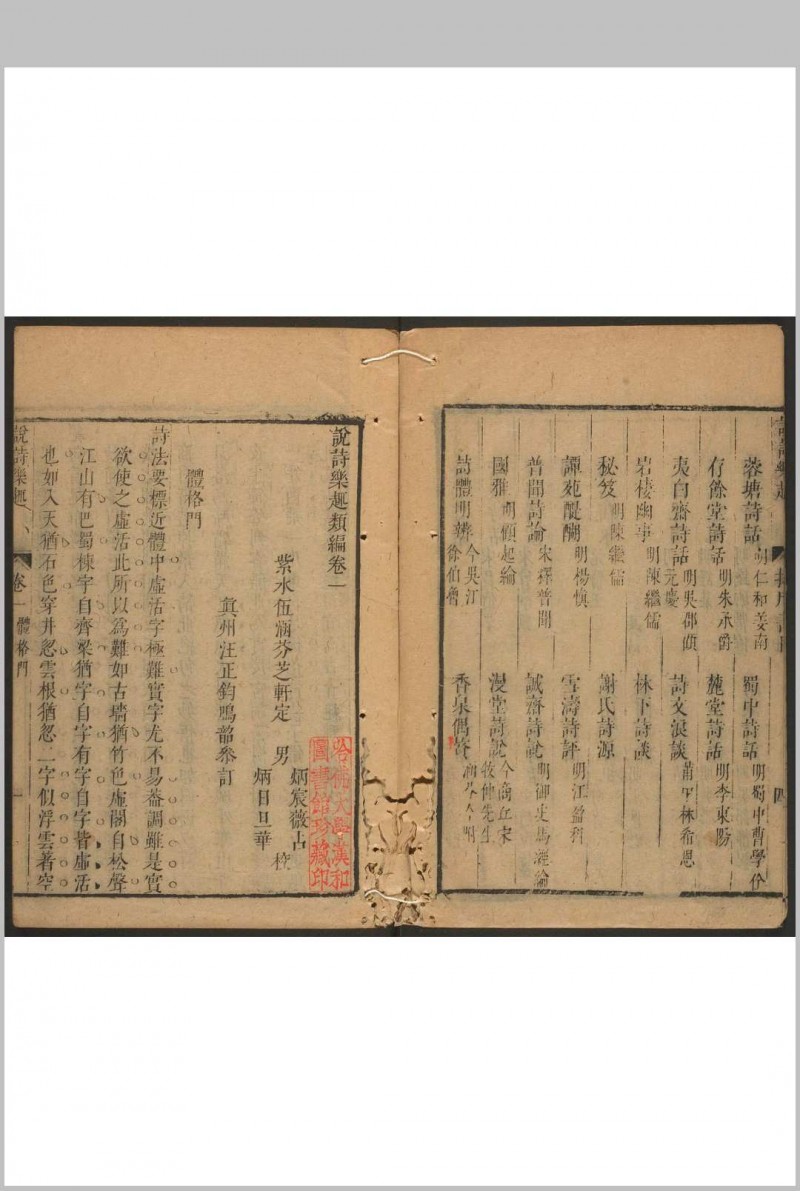 蓉塘詩話 明仁和姜南 蜀中詩話 明蜀中曹學佺
存餘堂詩話 明朱承爵 麓堂詩話 明李東陽
夷白齋詩話 明吳郡顧元慶 詩文浪談 莆田林希恩
岩棲幽事 明陳繼儒 林下詩談
秘笈 明陳繼儒 謝氏詩源
譚苑醍醐 明楊慎 雪濤詩評 明江盈科
普聞詩論 宋釋普聞 誠齋詩說 明御史馬經綸
國雅 明顧起綸 漫堂詩說 今商丘宋牧仲先生
詩體明辨 今吳江徐伯魯 香泉偶筆
四
說詩樂趣類編卷一
紫水伍涵芬芝軒定 男 炳宸薇占 炳日旦華 校
真州汪正鈞鳴韶叅訂
體格門
詩法要標近體中虛活字極難實字尤不易葢調雖是實
欲使之虛活此所以爲難如古墻猶竹色虛閣自松聲
江山有巴蜀棟宇自齊梁猶字自字有字自字皆虛活
也如入天猶石色穿井忽雲根猶忽二字似浮雲著空
說詩樂趣 卷一 體格門 一
哈佛大學漢和圖書館珍藏印